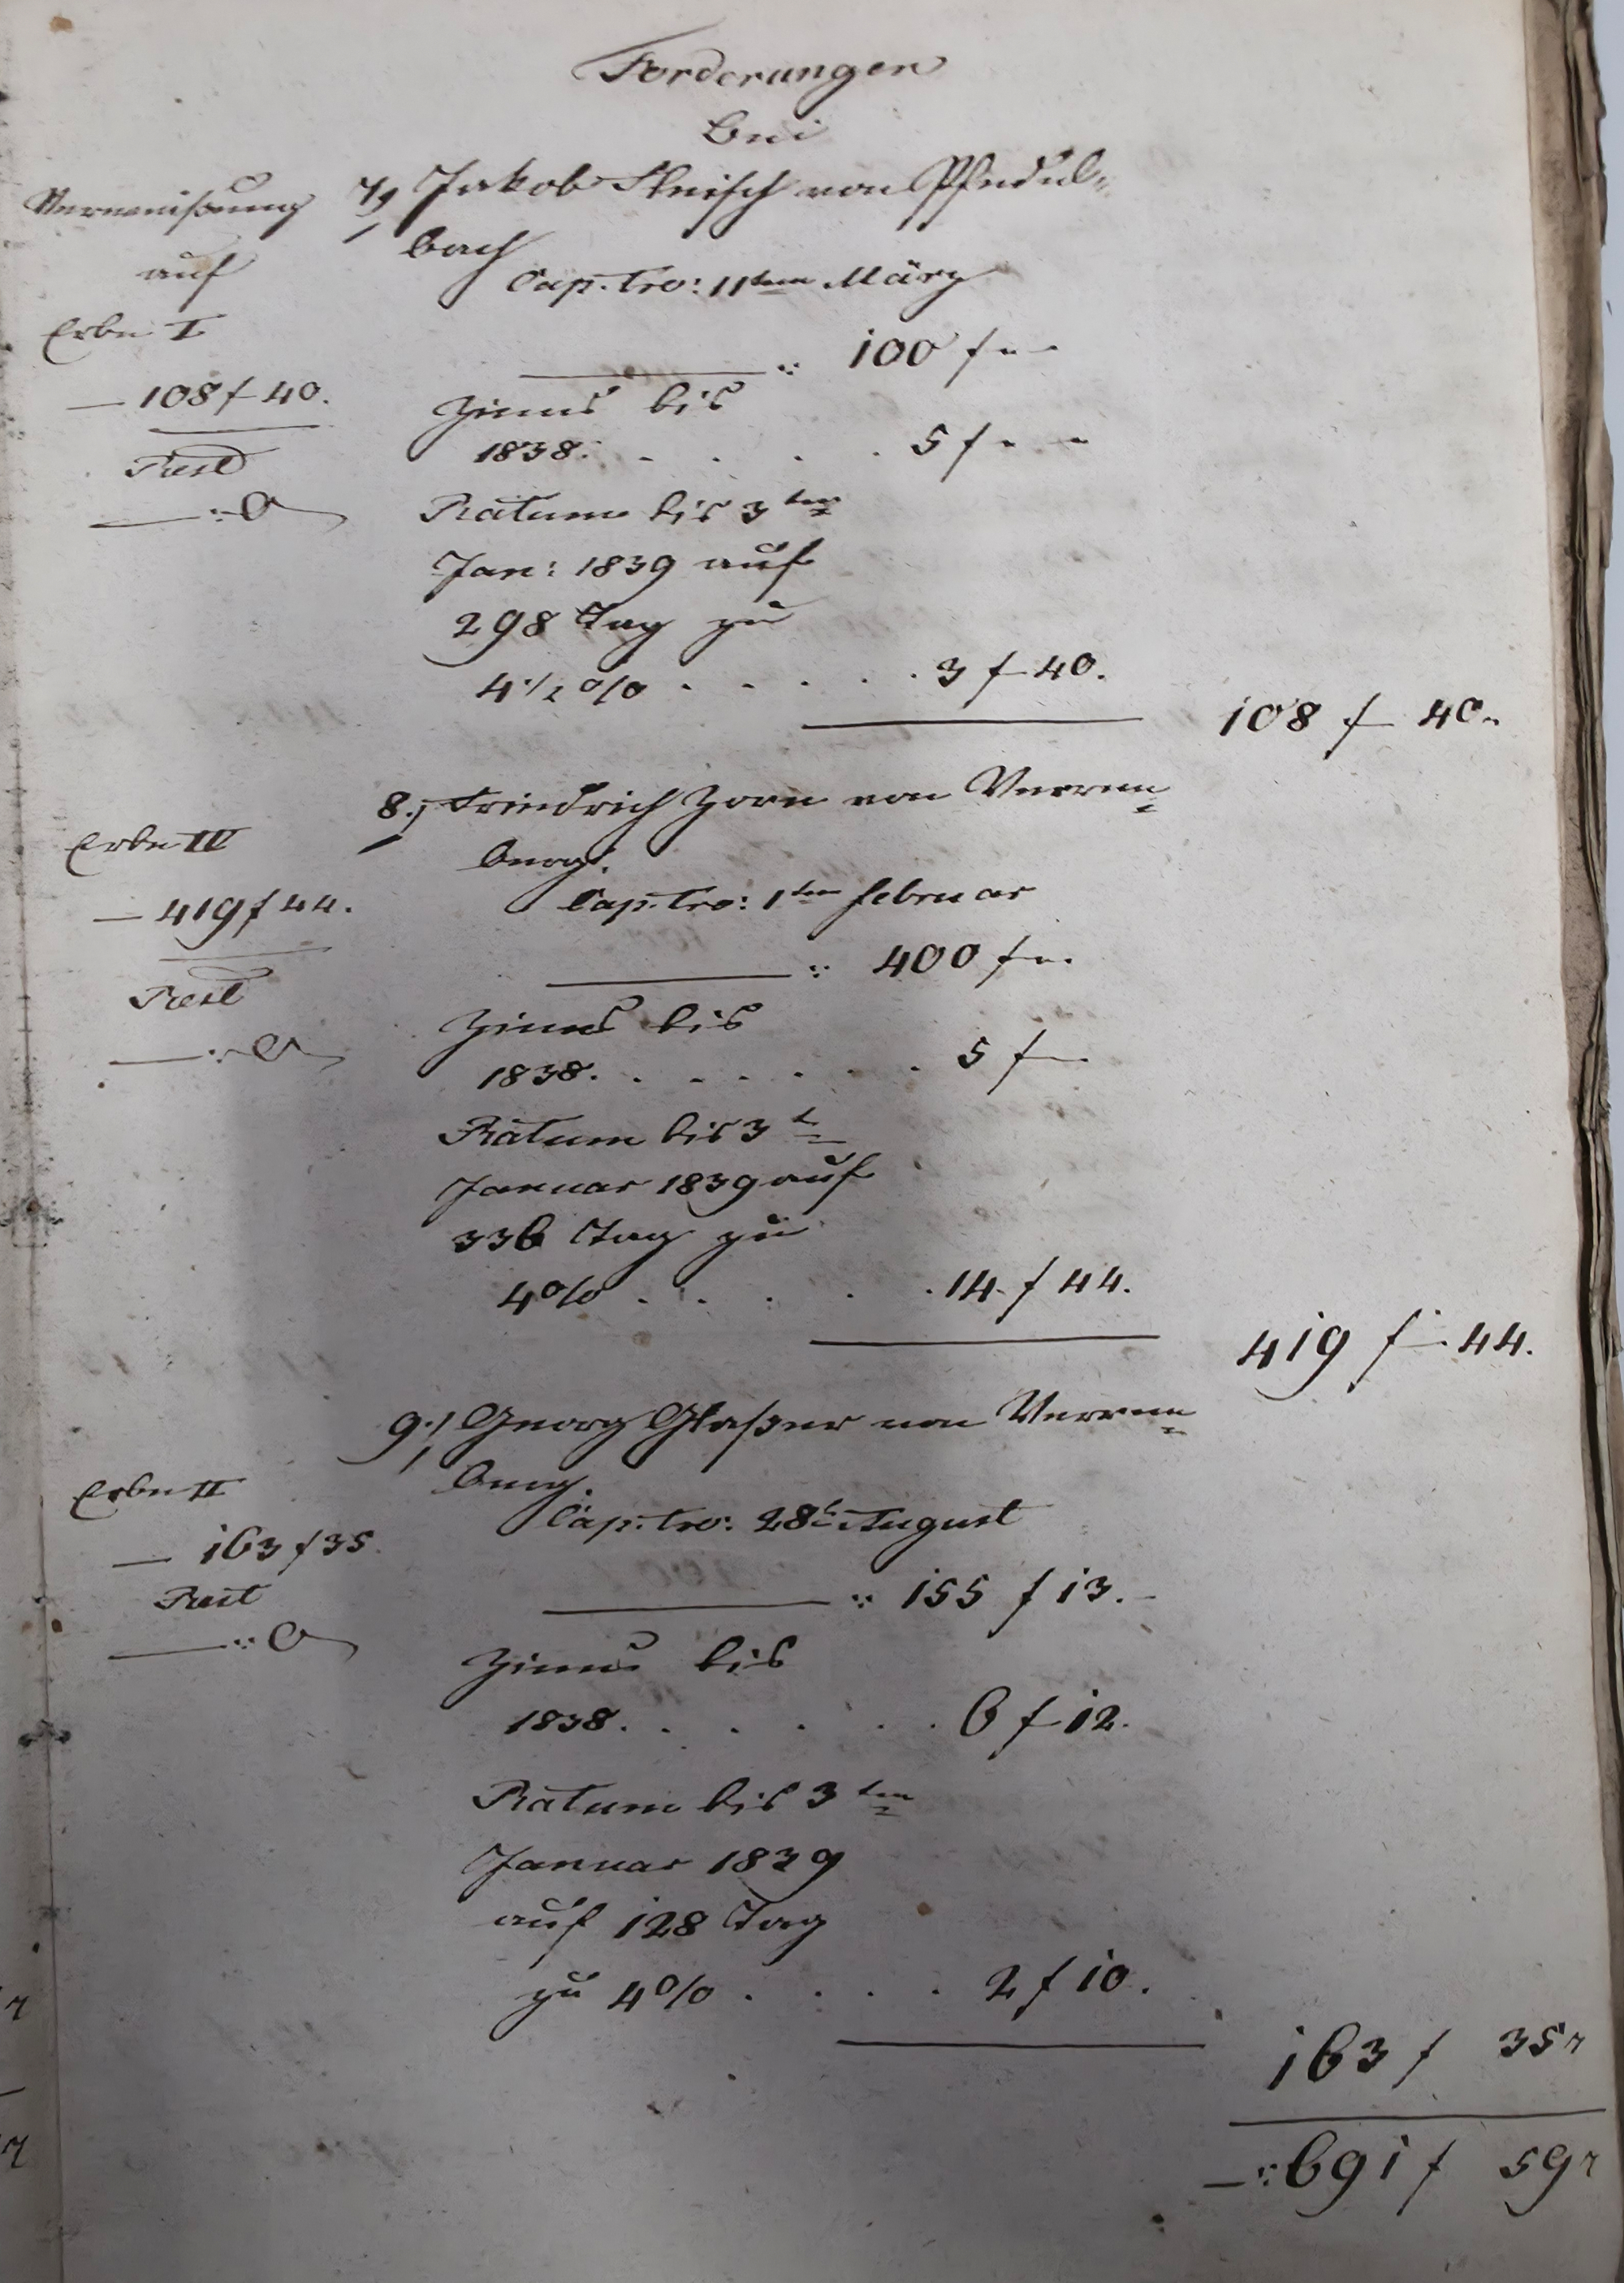 Forderungen
bei
Verweisung
auf
Erbe I
— 108 f 40.
Rest
—:0
7.) Jakob Fleisch von Pfedel=
bach
Cap. tro: 11ten März
—:: 100 f "—
Zinns bis
1838. . . . . 5 f " —
Ratum bis 3ten
Jan: 1839 auf
298 Tag zu
4 1/2 % . . . . . 3 f 40.
108 f — 40.
8.) Friedrich Zorn von Verren=
berg.
Erbe IV
— 419 f 44.
Rest
—:0
Cap. tro: 1ten Februar
—:: 400 f ".
Zinns bis
1838. . . . . . . 5 f —
Ratum bis 3t
Januar 1839 auf
336 Tag zu
4 % . . . . . 14. f 44.
419 f — 44.
9.) Georg Glaßer von Verren=
berg.
Erbe II
— 163 f 35.
Rest
—::0
Cap. tro: 28t August
—:: 155 f 13. -
Zinns bis
1838. . . . . . 6 f 12.
Ratum bis 3ten
Januar 1839
auf 128 Tag
zu 4 % . . . . 2 f 10.
163 f 35 "
—:: 691 f 59 "